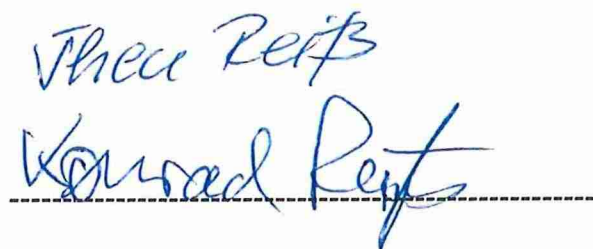 Thea Reiß
Konrad Reiß